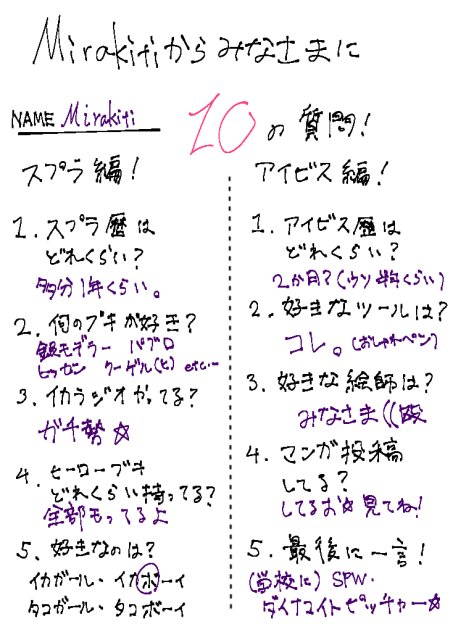 Mirakitiからみなさまに
NAME Mirakiti
10の質問!
スプラ編!
1. スプラ歴は
どれくらい?
多分1年くらい。
2. 何のブキが好き?
銀モデラー パブロ
ヒッセン クーゲル(ヒ) etc…
3. イカラジオかってる?
ガチ勢☆
4. ヒーローブキ
どれくらい持ってる?
全部もってるよ
5. 好きなのは?
イカガール・イカボーイ
タコガール・タコボーイ
アイビス編!
1. アイビス歴は
どれくらい?
2か月?(ウソ半年くらい)
2. 好きなツールは?
コレ。(おしゃれペン)
3. 好きな絵師は?
みなさま((殴
4. マンガ投稿
してる?
してるお☆見てね!
5. 最後に一言!
(学校に) SPW・
ダイナマイトピッチャー☆